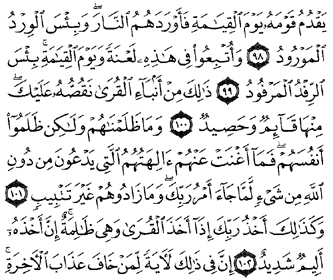 يَقْدُمُ قَوْمَهُۥ يَوْمَ ٱلْقِيَٰمَةِ فَأَوْرَدَهُمُ ٱلنَّارَ ۖ وَبِئْسَ ٱلْوِرْدُ
ٱلْمَوْرُودُ ٩٨ وَأُتْبِعُوا۟ فِى هَٰذِهِۦ لَعْنَةً وَيَوْمَ ٱلْقِيَٰمَةِ ۚ بِئْسَ
ٱلرِّفْدُ ٱلْمَرْفُودُ ٩٩ ذَٰلِكَ مِنْ أَنۢبَآءِ ٱلْقُرَىٰ نَقُصُّهُۥ عَلَيْكَ ۖ
مِنْهَا قَآئِمٌ وَحَصِيدٌ ١٠٠ وَمَا ظَلَمْنَٰهُمْ وَلَٰكِن ظَلَمُوٓا۟
أَنفُسَهُمْ ۖ فَمَآ أَغْنَتْ عَنْهُمْ ءَالِهَتُهُمُ ٱلَّتِى يَدْعُونَ مِن دُونِ
ٱللَّهِ مِن شَىْءٍ لَّمَّا جَآءَ أَمْرُ رَبِّكَ ۖ وَمَا زَادُوهُمْ غَيْرَ تَتْبِيبٍ ١٠١
وَكَذَٰلِكَ أَخْذُ رَبِّكَ إِذَآ أَخَذَ ٱلْقُرَىٰ وَهِىَ ظَٰلِمَةٌ ۚ إِنَّ أَخْذَهُۥٓ
أَلِيمٌ شَدِيدٌ ١٠٢ إِنَّ فِى ذَٰلِكَ لَءَايَةً لِّمَنْ خَافَ عَذَابَ ٱلْءَاخِرَةِ ۚ